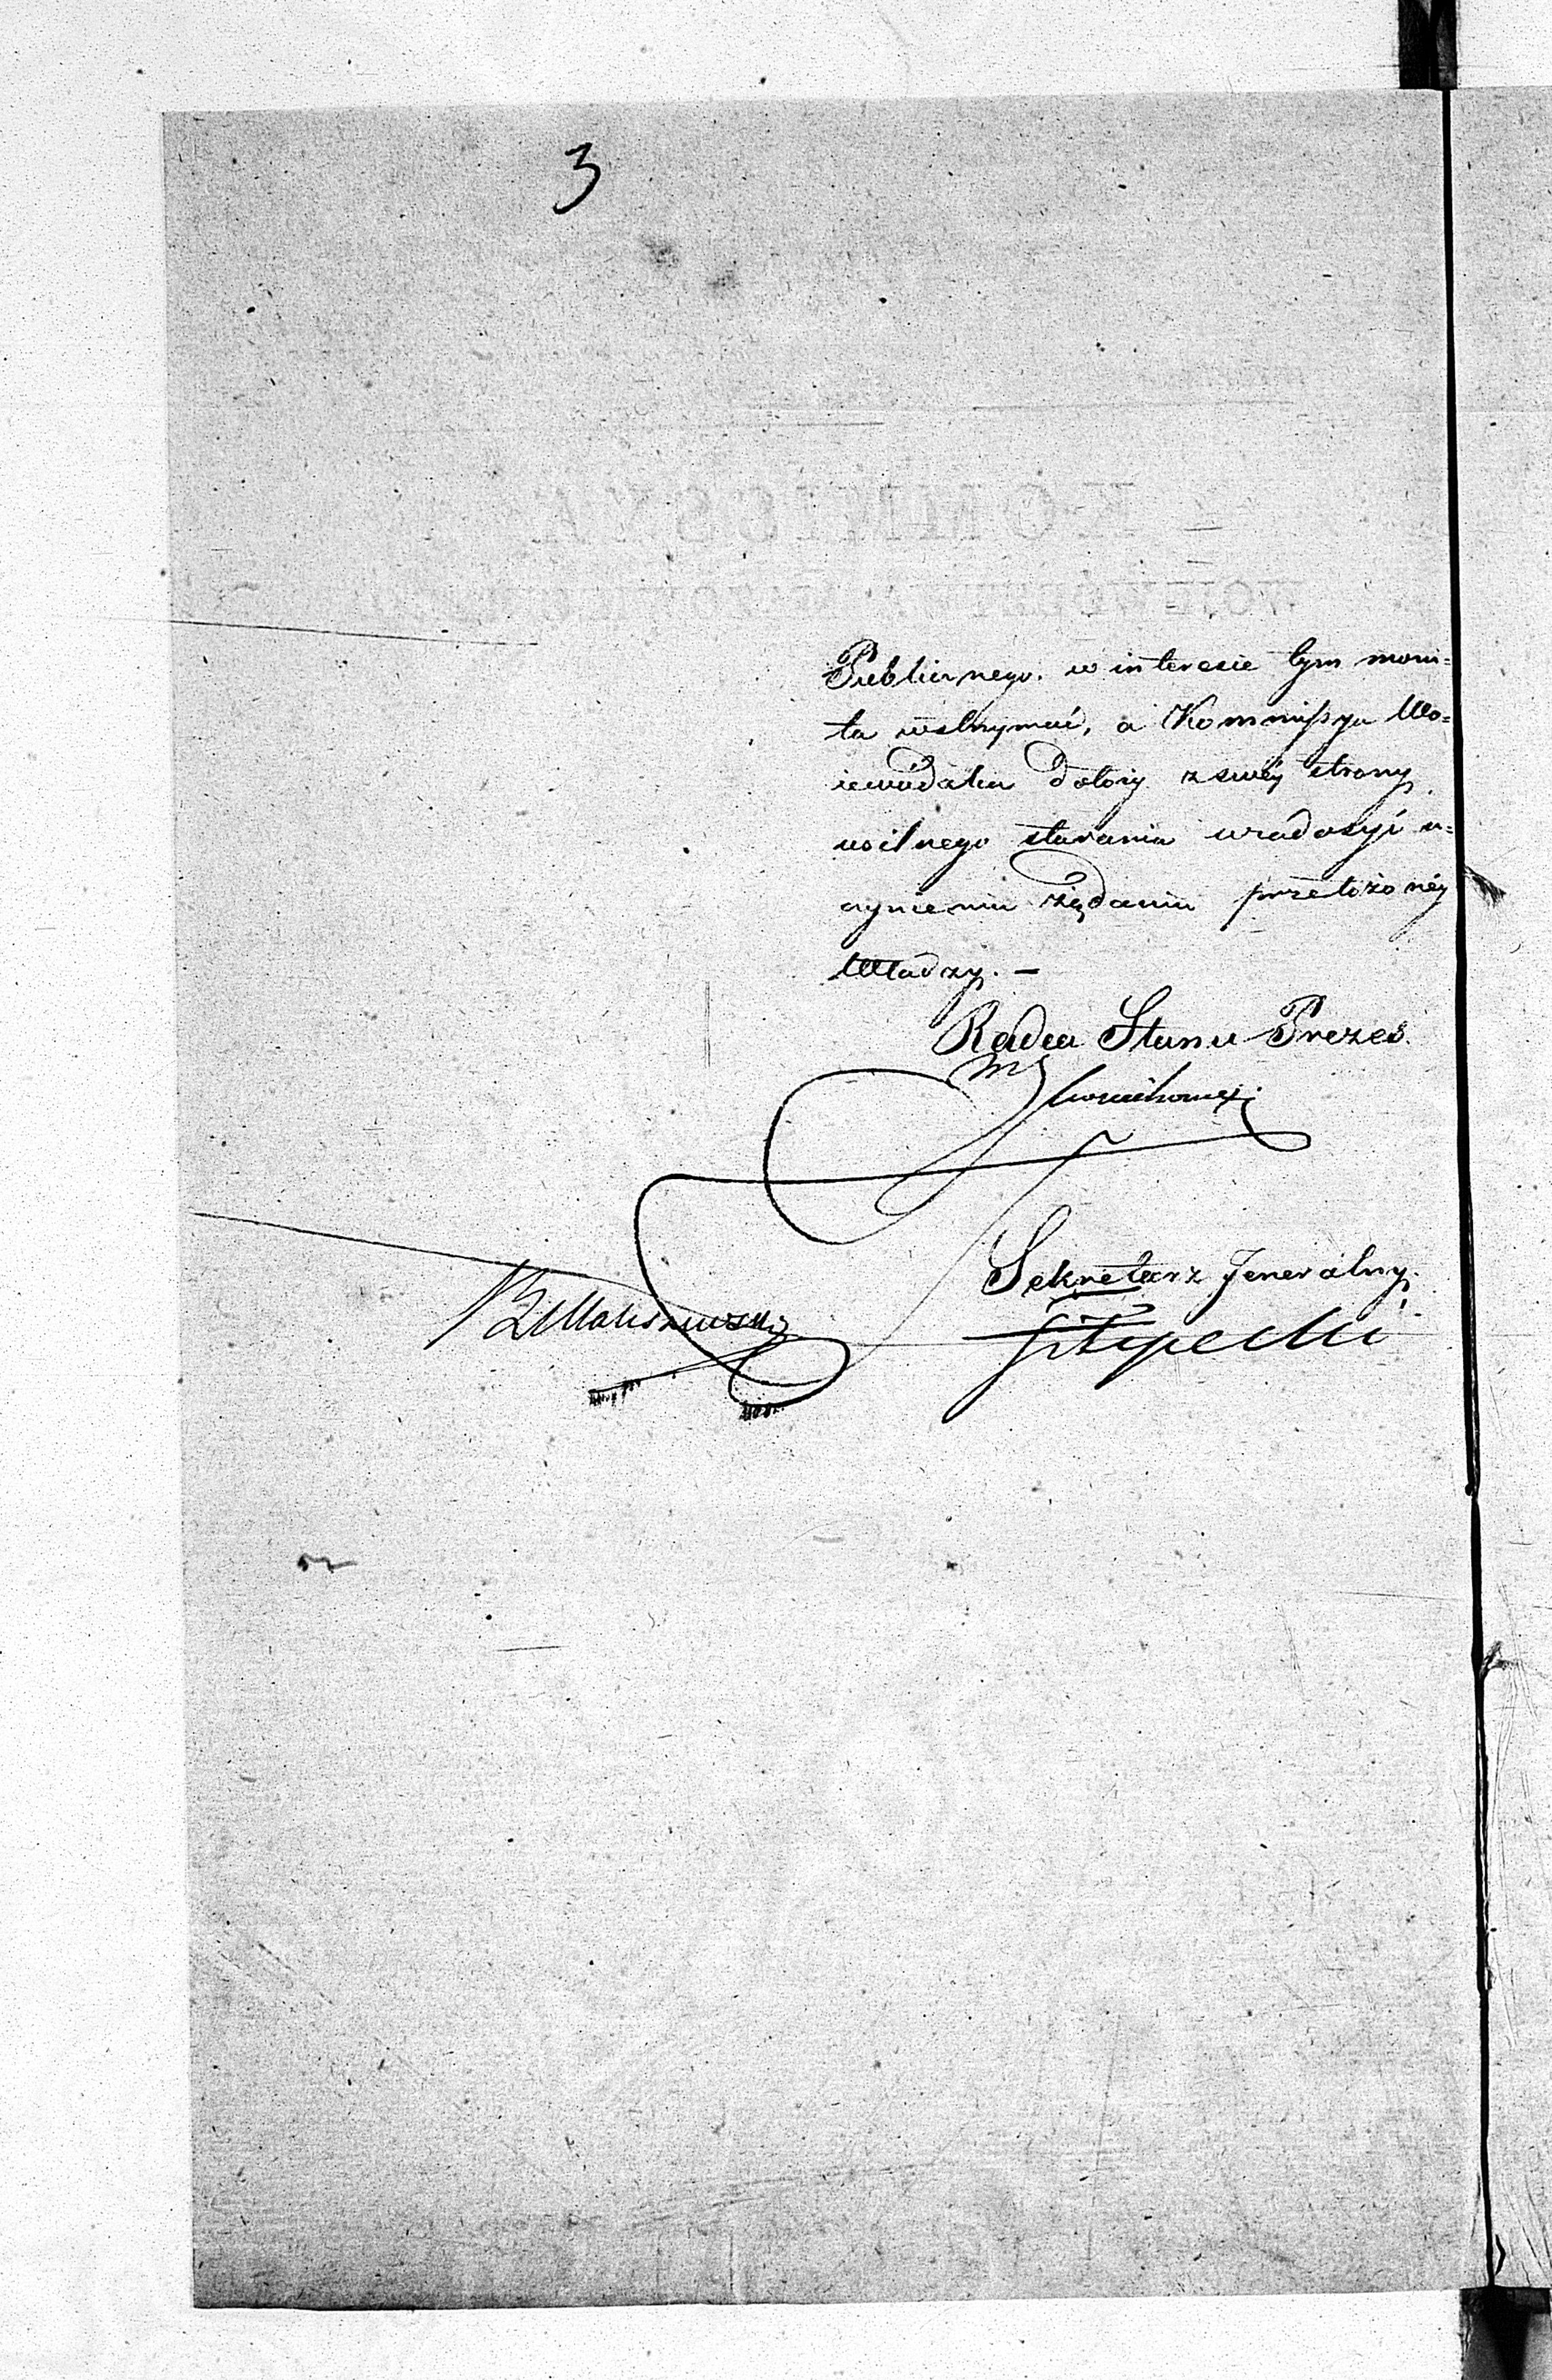 3
Publicznego. w interesie tym moni=
ta wstrzymać, a Kommissya Wo=
iewódzka dołoży z swéy strony
usilnego starania w zadosyć u=
czynieniu żądaniu przełożonéy
Władzy. —
Radca Stanu Prezes.
Sekretarz Jeneralny.
Filipecki